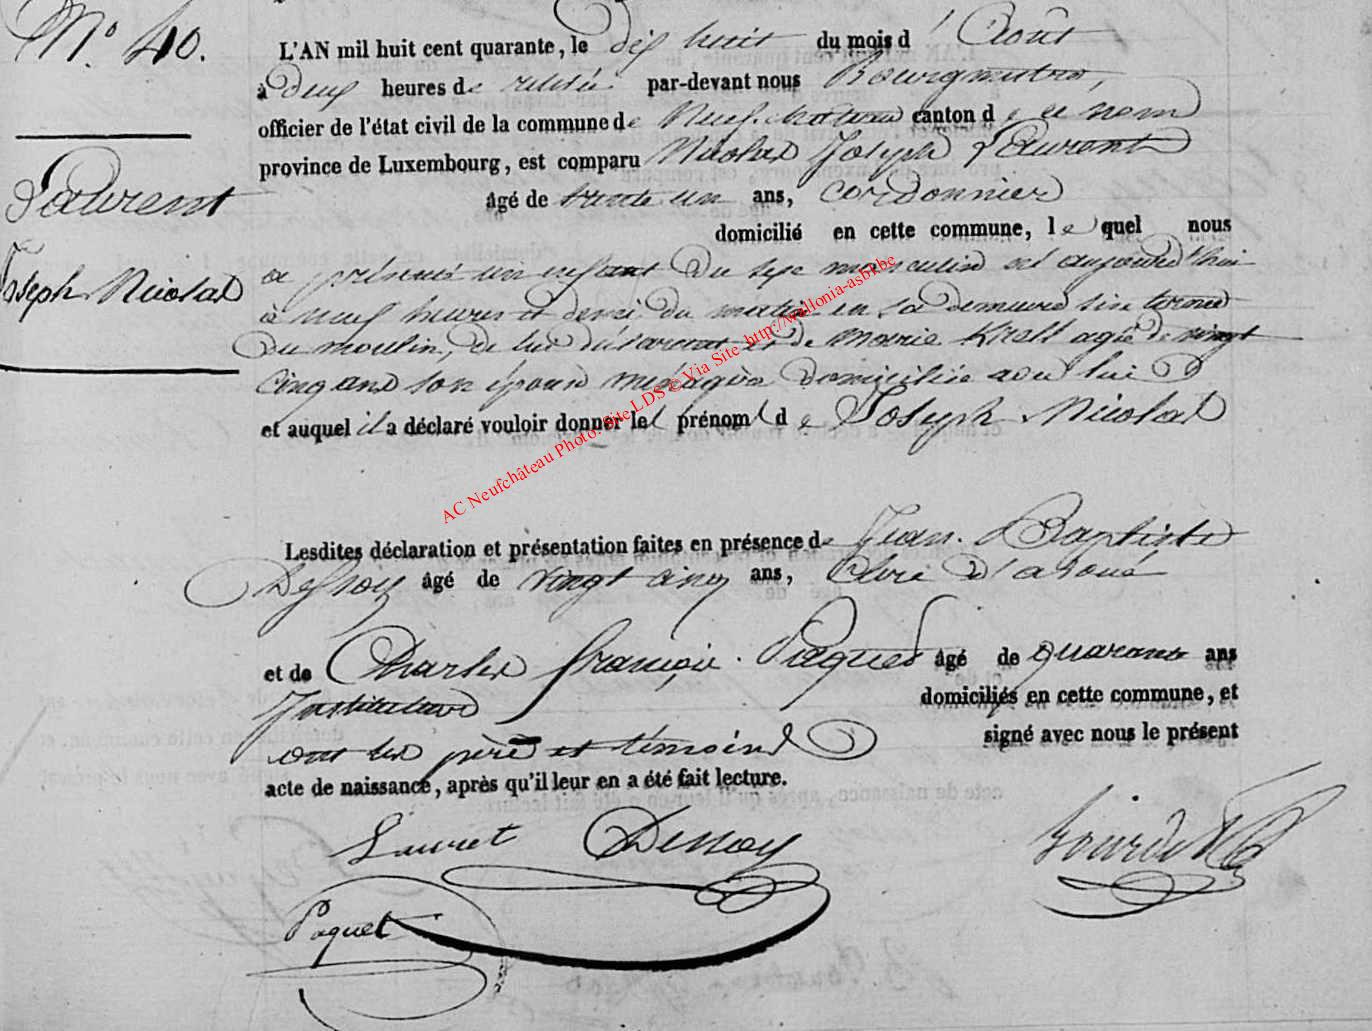 N.° 40.
L'AN mil huit cent quarante, le dix huit du mois d'Août
à deux heures de relevée par-devant nous Bourgmestre,
officier de l'état civil de la commune de Neufchateau canton d e ce nom
province de Luxembourg, est comparu Nicolas Joseph Laurent
Laurent
âgé de trente un ans, cordonnier
domicilié en cette commune, le quel nous
Joseph Nicolas
a présenté un enfant du sexe masculin né aujourd'hui
à neuf heures et demi du matin en sa demeure sise
du moulin, de lui déclarant et de Marie agée de vingt
cinq ans son épouse ménagère domiciliée avec lui
et auquel il a déclaré vouloir donner les prénoms d e Joseph Nicolas
AC Neufchâteau Photo: Site LDS © Via Site http://wallonia-asbl.be
Lesdites déclaration et présentation faites en présence de Jean-Baptiste
Dessoy âgé de vingt cinq ans, Clerc d'avoué
et de Charles françois Paquet âgé de quarante ans
Instituteur domiciliés en cette commune, et
ont les père et témoins signé avec nous le présent
acte de naissance, après qu'il leur en a été fait lecture.
Lauret Dessoy
Paquet